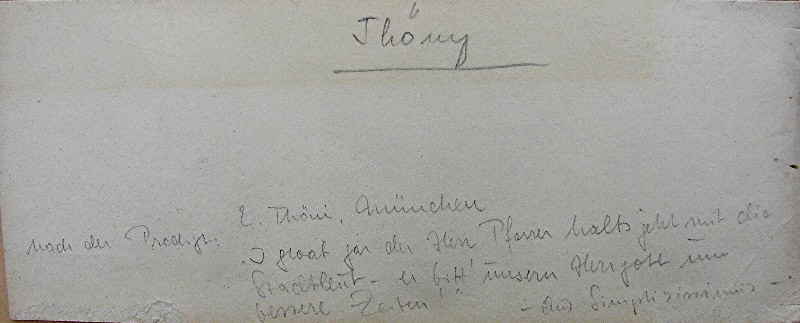 Thöny
E. Thöni, München
nach der Predigt:
gar der Herr Pfarrer halts jetzt mit die
Stadtleut – er bitt' unsern Herrgott um
bessere Zeiten!"
– Aus Simplizissimus –